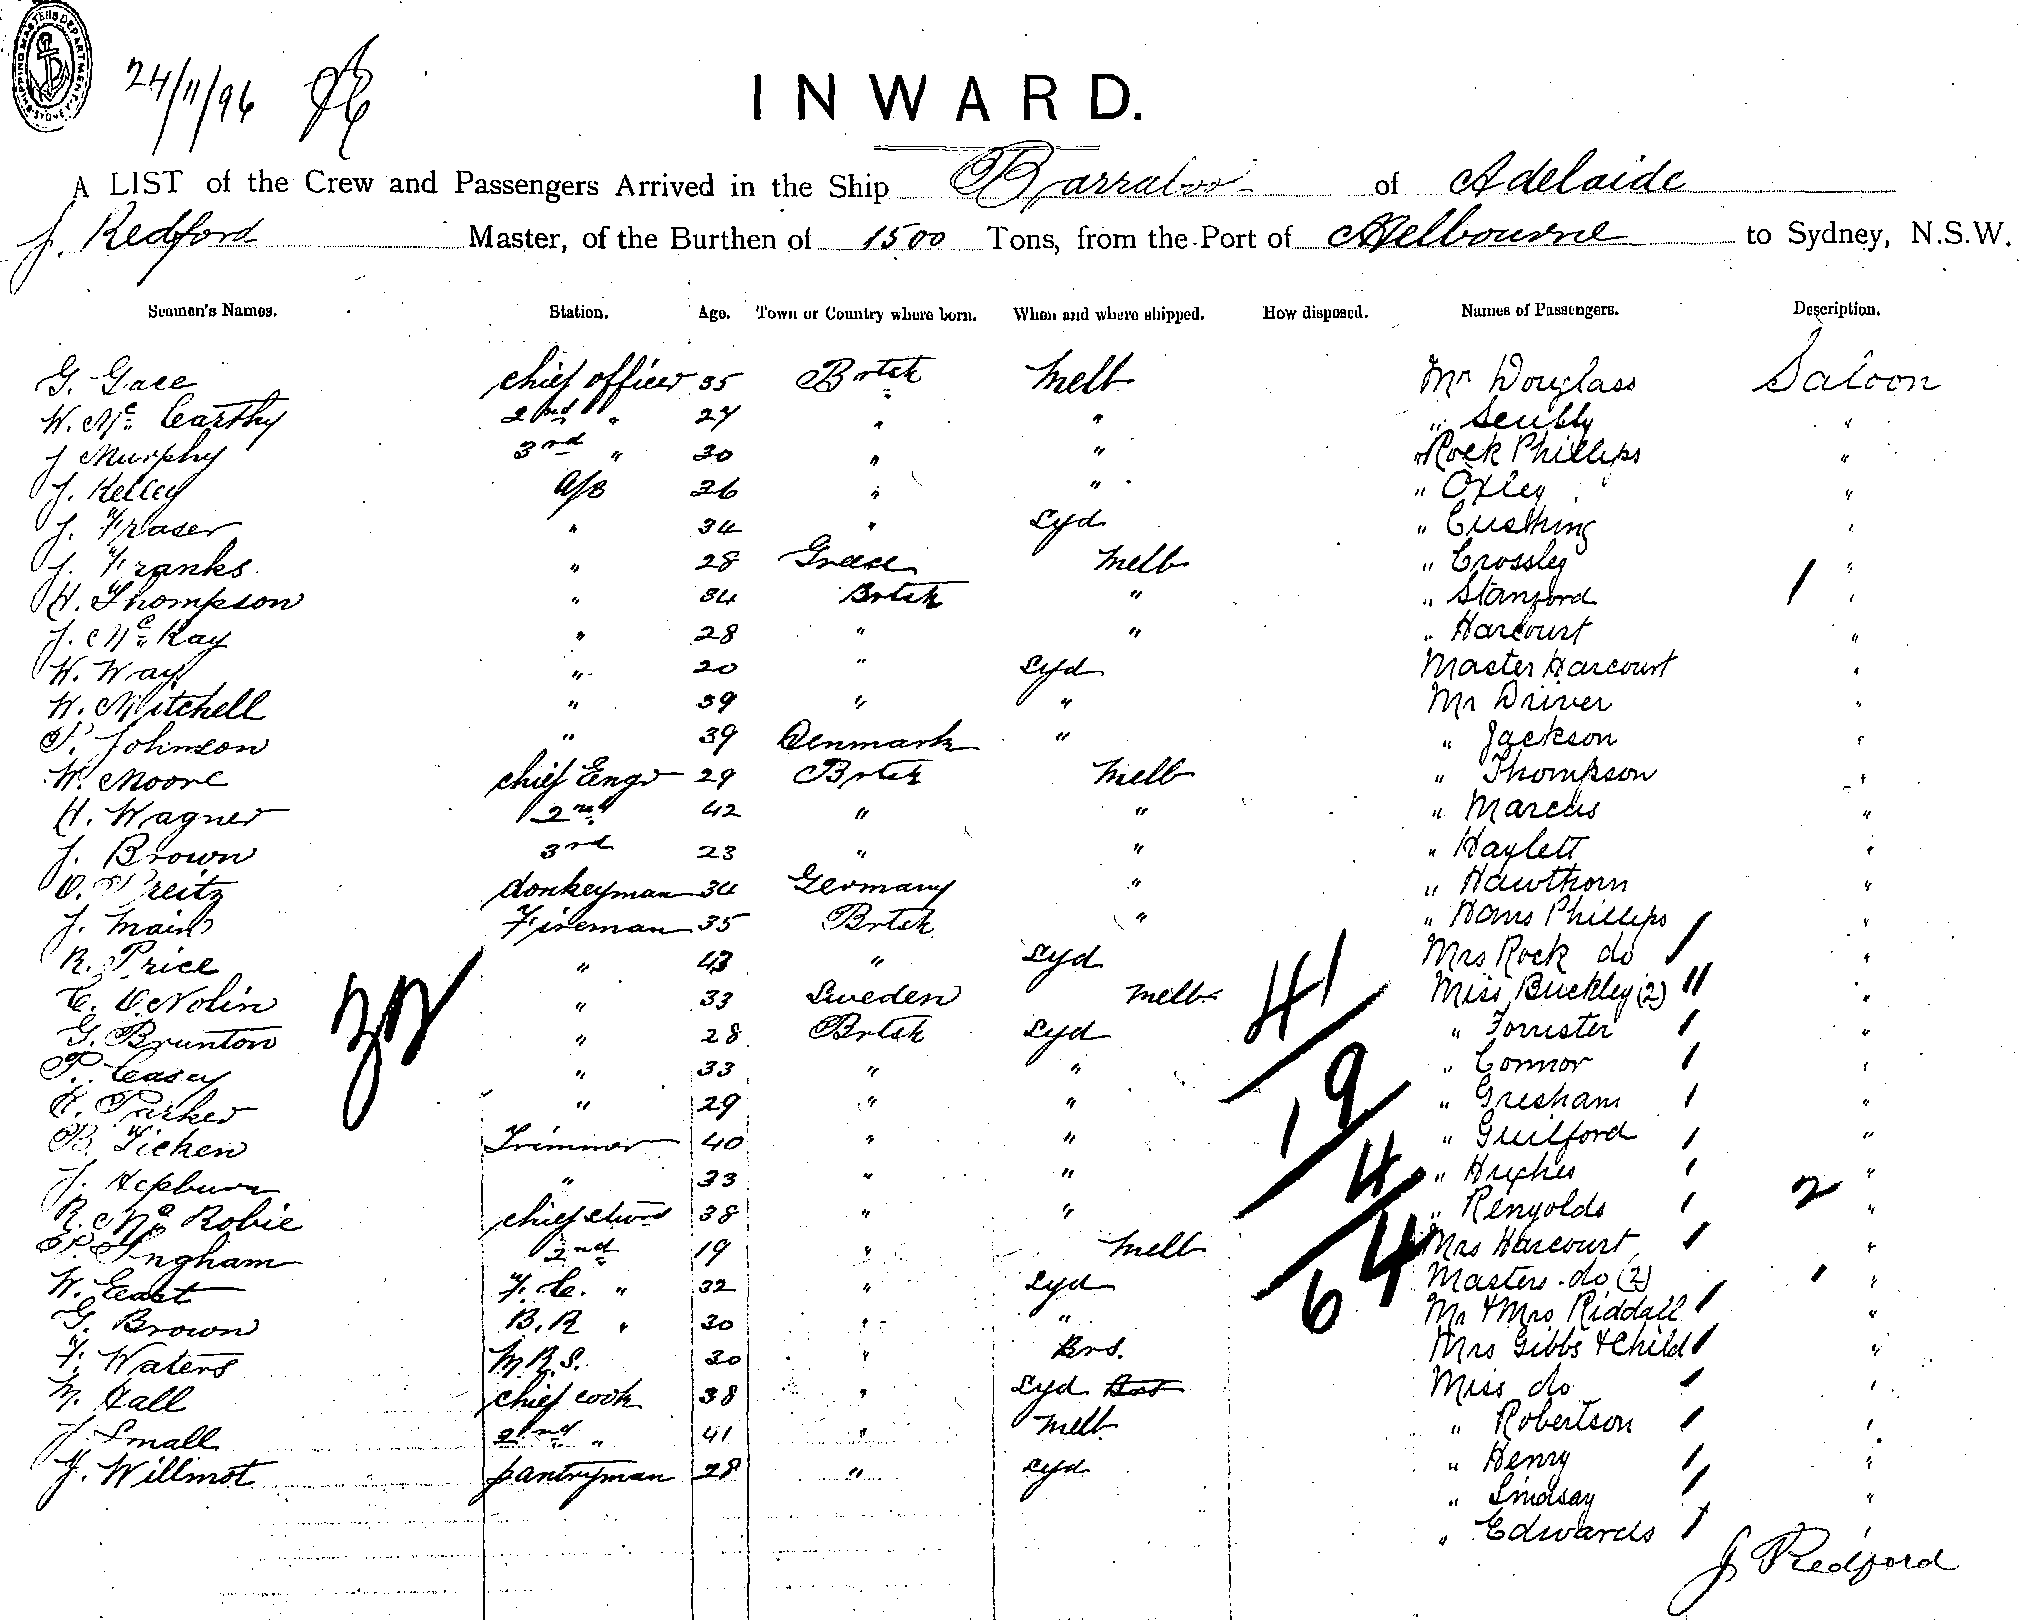 SHIPPING MASTERS DEPARTMENT SYDNEY
24/11/96
INWARD.
A LIST of the Crew and Passengers Arrived in the Ship Barraboo of Adelaide
J. Redford Master, of the Burthen of 1500 Tons, from the Port of Melbourne to Sydney, N.S.W.
Seamen's Names. Station. Age. Town or Country where born. When and where shipped. How disposed. Names of Passengers. Description.
G. Gace chief officer 35 Brtsh Melb Mr Douglass Saloon
W. Mc Carthy 2nd " 27 " " " Scully "
J Murphy 3rd " 30 " " " Rock Phillips "
J. Kelley A/B 26 " " " Oxley "
J. Fraser " 34 " Syd " Cushing "
J. Franks " 28 Greece Melb " Crossley "
H. Thompson " 34 Brtsh " " Stanford 1 "
J. Mc Kay " 28 " " " Harcourt "
W. Way " 20 " Syd Master Harcourt "
W. Mitchell " 39 " " Mr Driver "
P. Johnson " 39 Denmark " " Jackson "
W. Moore chief Engr 29 Brtsh Melb " Thompson "
H. Wagner 2nd 42 " " " Marcus "
J. Brown 3rd 23 " " " Haylett "
O. Preitz donkeyman 34 Germany " " Hawthorn "
J. Main Fireman 35 Brtsh " " Hans Phillips "
R. Price " 43 " Syd Mrs Rock do / "
C. O. Nolin " 33 Sweden Melb Miss Buckley (2) // "
G. Brunton " 28 Brtsh Syd " Forrister / "
P. Casey " 33 " " " Connor / "
Parker " 29 " " " Gresham / "
B. Ticken Trimmer 40 " " " Guilford / "
J. Hepburn " 33 " " " Hughes / "
R. Mc Robie chief stwrd 38 " " " Renyolds / 2 "
P. Ingham 2nd 19 " Melb Mrs Harcourt / "
W. East F. C. " 32 " Syd Masters do (2) 1 "
G. Brown B. R " 30 " " Mr & Mrs Riddall / "
F. Waters M.R.S. 30 " Brs. Mrs Gibbs & Child / "
Hall chief cook 38 " Syd Miss do / "
J. Small 2nd " 41 " Melb " Robertson / "
J. Willmot pantryman 28 " Syd " Henry / "
" Lindsay / "
" Edwards / "
32
41
19
4
64
J Redford